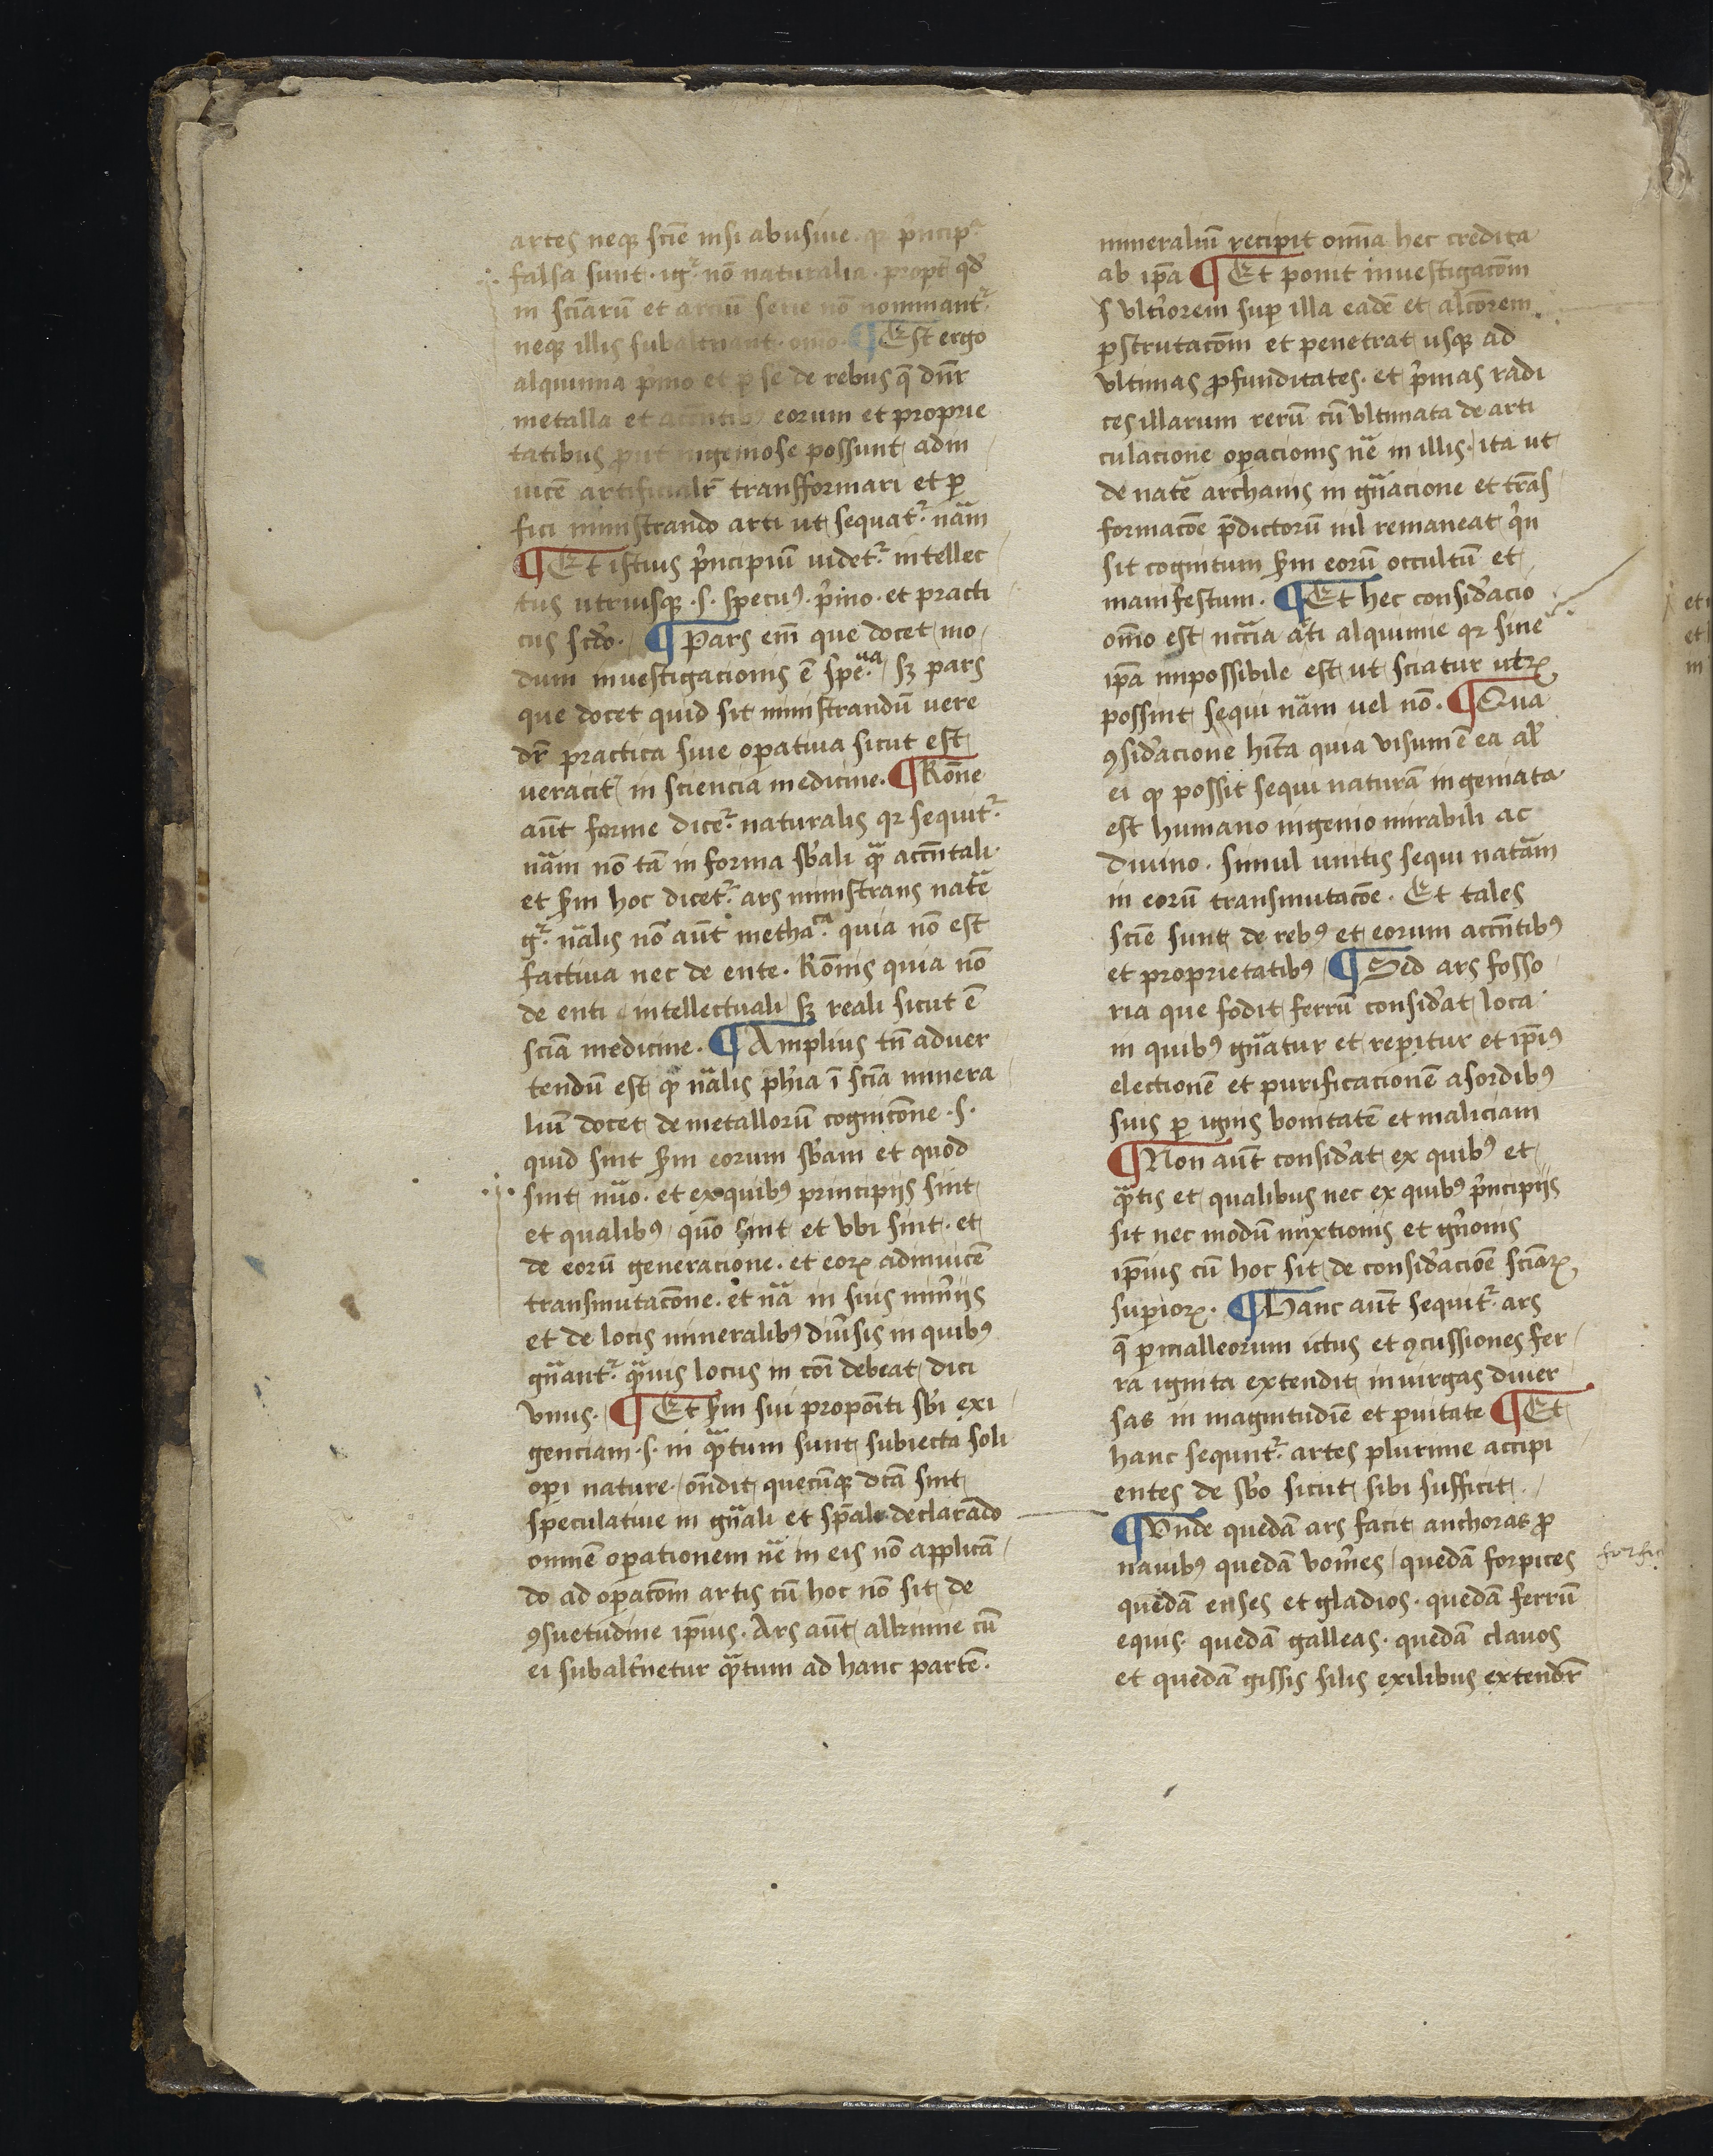 artes neqꝫ scīe nisi abusiue. qꝛ p̓ncip̓
falsa sunt. ig̓ nō naturalia. propt̓ qd̓
in sciarū et arciū serie nō nominant᷑
neqꝫ illis subalt̓nant. om̄o. ¶ Est ergo
alquimia p̓mo et ꝑ se de rebus q̄ dn̄r
metalla et accn̄tibꝰ eorum et proprie
tatibus prut ingeniose possunt adin
uicē artificialr̄ transformari et ꝑ
fici ministrando arti ut sequat᷑ nām
¶ Et istius p̓ncipiū uidet᷑ intellec
tus utriusqꝫ .s. specuꝰ. p̓mo. et practi
cus scd̓o. ¶ Pars em̄ que docet mo
dum inuestigacionis ē spe.ᵘᵃ sꝫ pars
que docet quid sit ministrandū uere
dr̄ practica siue oꝑatiua sicut est
ueracit̓ in sciencia medicine. ¶ Rōne
aūt forme dicet᷑ naturalis qꝛ sequit᷑
nām nō tā in forma sb̓ali qᷓ accn̄tali.
et scd̓m hoc dicet᷑ ars ministrans natē
g᷑. nālis nō aūt methaᶜᵃ. quia nō est
factiua nec de ente. Rōnis quia nō
de enti intellectuali sꝫ reali sicut ē
sciā medicine. ¶ Amplius tn̄ aduer
tendū est ꝙ nālis phīa ī sciā minera
liū docet de metallorū cognicōne .s.
quid sint scd̓m eorum sb̓am et quod
sint nūo. et ex quibꝰ principijs sint
et qualibꝰ quō sint et vbi sint. et
de eorū generacione. et eoꝝ adinuicē
transmutacōne. et nā in suis min̓ijs
et de locis mineralibꝰ diu̓sis in quibꝰ
gn̄ant᷑ qᷓuis locus in cōi debeat dici
vnus. ¶ Et scd̓m sui propon̄ti sb̓i exi
genciam .s. in qᷓtum sunt subiecta soli
oꝑi nature on̄dit quecūqꝫ dcā sint
speculatiue in gn̄ali et sp̄ali declarādo
omnē oꝑationem nē in eis nō applicā
do ad oꝑacōm artis cū hoc nō sit de
ꝯsuetudine ip̄ius. Ars aūt alkimie cū
ei subalt̓netur qᷓtum ad hanc partē.
mineraliū recipit om̄ia hec credita
ab ip̄a ¶ Et ponit inuestigacōm
s vlt̓iorem suꝑ illa eadē et alcōrem
ꝑscrutacōm et penetrat usqꝫ ad
vltimas ꝓfunditates. et p̓mas radi
ces illarum rerū cū vltimata de arti
culacione oꝑacionis nē in illis. ita ut
de natē archanis in gn̄acione et trās
formacōe p̄dictorū nil remaneat q̓n
sit cognitum scd̓m eorū occultū et
manifestum. ¶ Et hec consid̓acio
om̄o est nccia āti alquimie qꝛ sine
ip̄a impossibile est ut sciatur utꝝ
possint sequi nām uel nō. ¶ Qua
ꝯsid̓acione hīta quia visum ē ea al̓
ei ꝙ possit sequi naturā ingeniata
est humano ingenio mirabili ac
diuino. simul unitis sequi natām
in eorū transmutacōe. Et tales
scīe sunt de rebꝰ et eorum accn̄tibꝰ
et proprietatibꝰ ¶ Sed ars fosso
ria que fodit ferrū consid̓at loca
in quibꝰ gn̄atur et reꝑitur et ip̄iꝰ
electionē et purificacionē a sordibꝰ
suis ꝑ ignis bonitatē et maliciam
¶ Non aūt consid̓at ex quibꝰ et
qᷓtis et qualibus nec ex quibꝰ p̓ncipijs
sit nec modū mixtionis et gn̓onis
ip̄ius cū hoc sit de consid̓acioē sciāꝝ
suꝑioꝝ. ¶ Hanc aūt sequit᷑ ars
q̄ ꝑ malleorum ictus et ꝯcussiones fer
ra ignita extendit in uirgas diuer
sas in magnitudīe et ꝑuitate ¶ Et
hanc sequnt᷑ artes plurime accipi
entes de sb̓o sicut sibi sufficit.
¶ Vnde quedā ars facit anchoras ꝓ
nauibꝰ quedā vom̓es quedā forpices
quedā enses et gladios. quedā ferrū
equis. quedā galleas. quedā clauos
et quedā gissis filis exilibus extendr̄